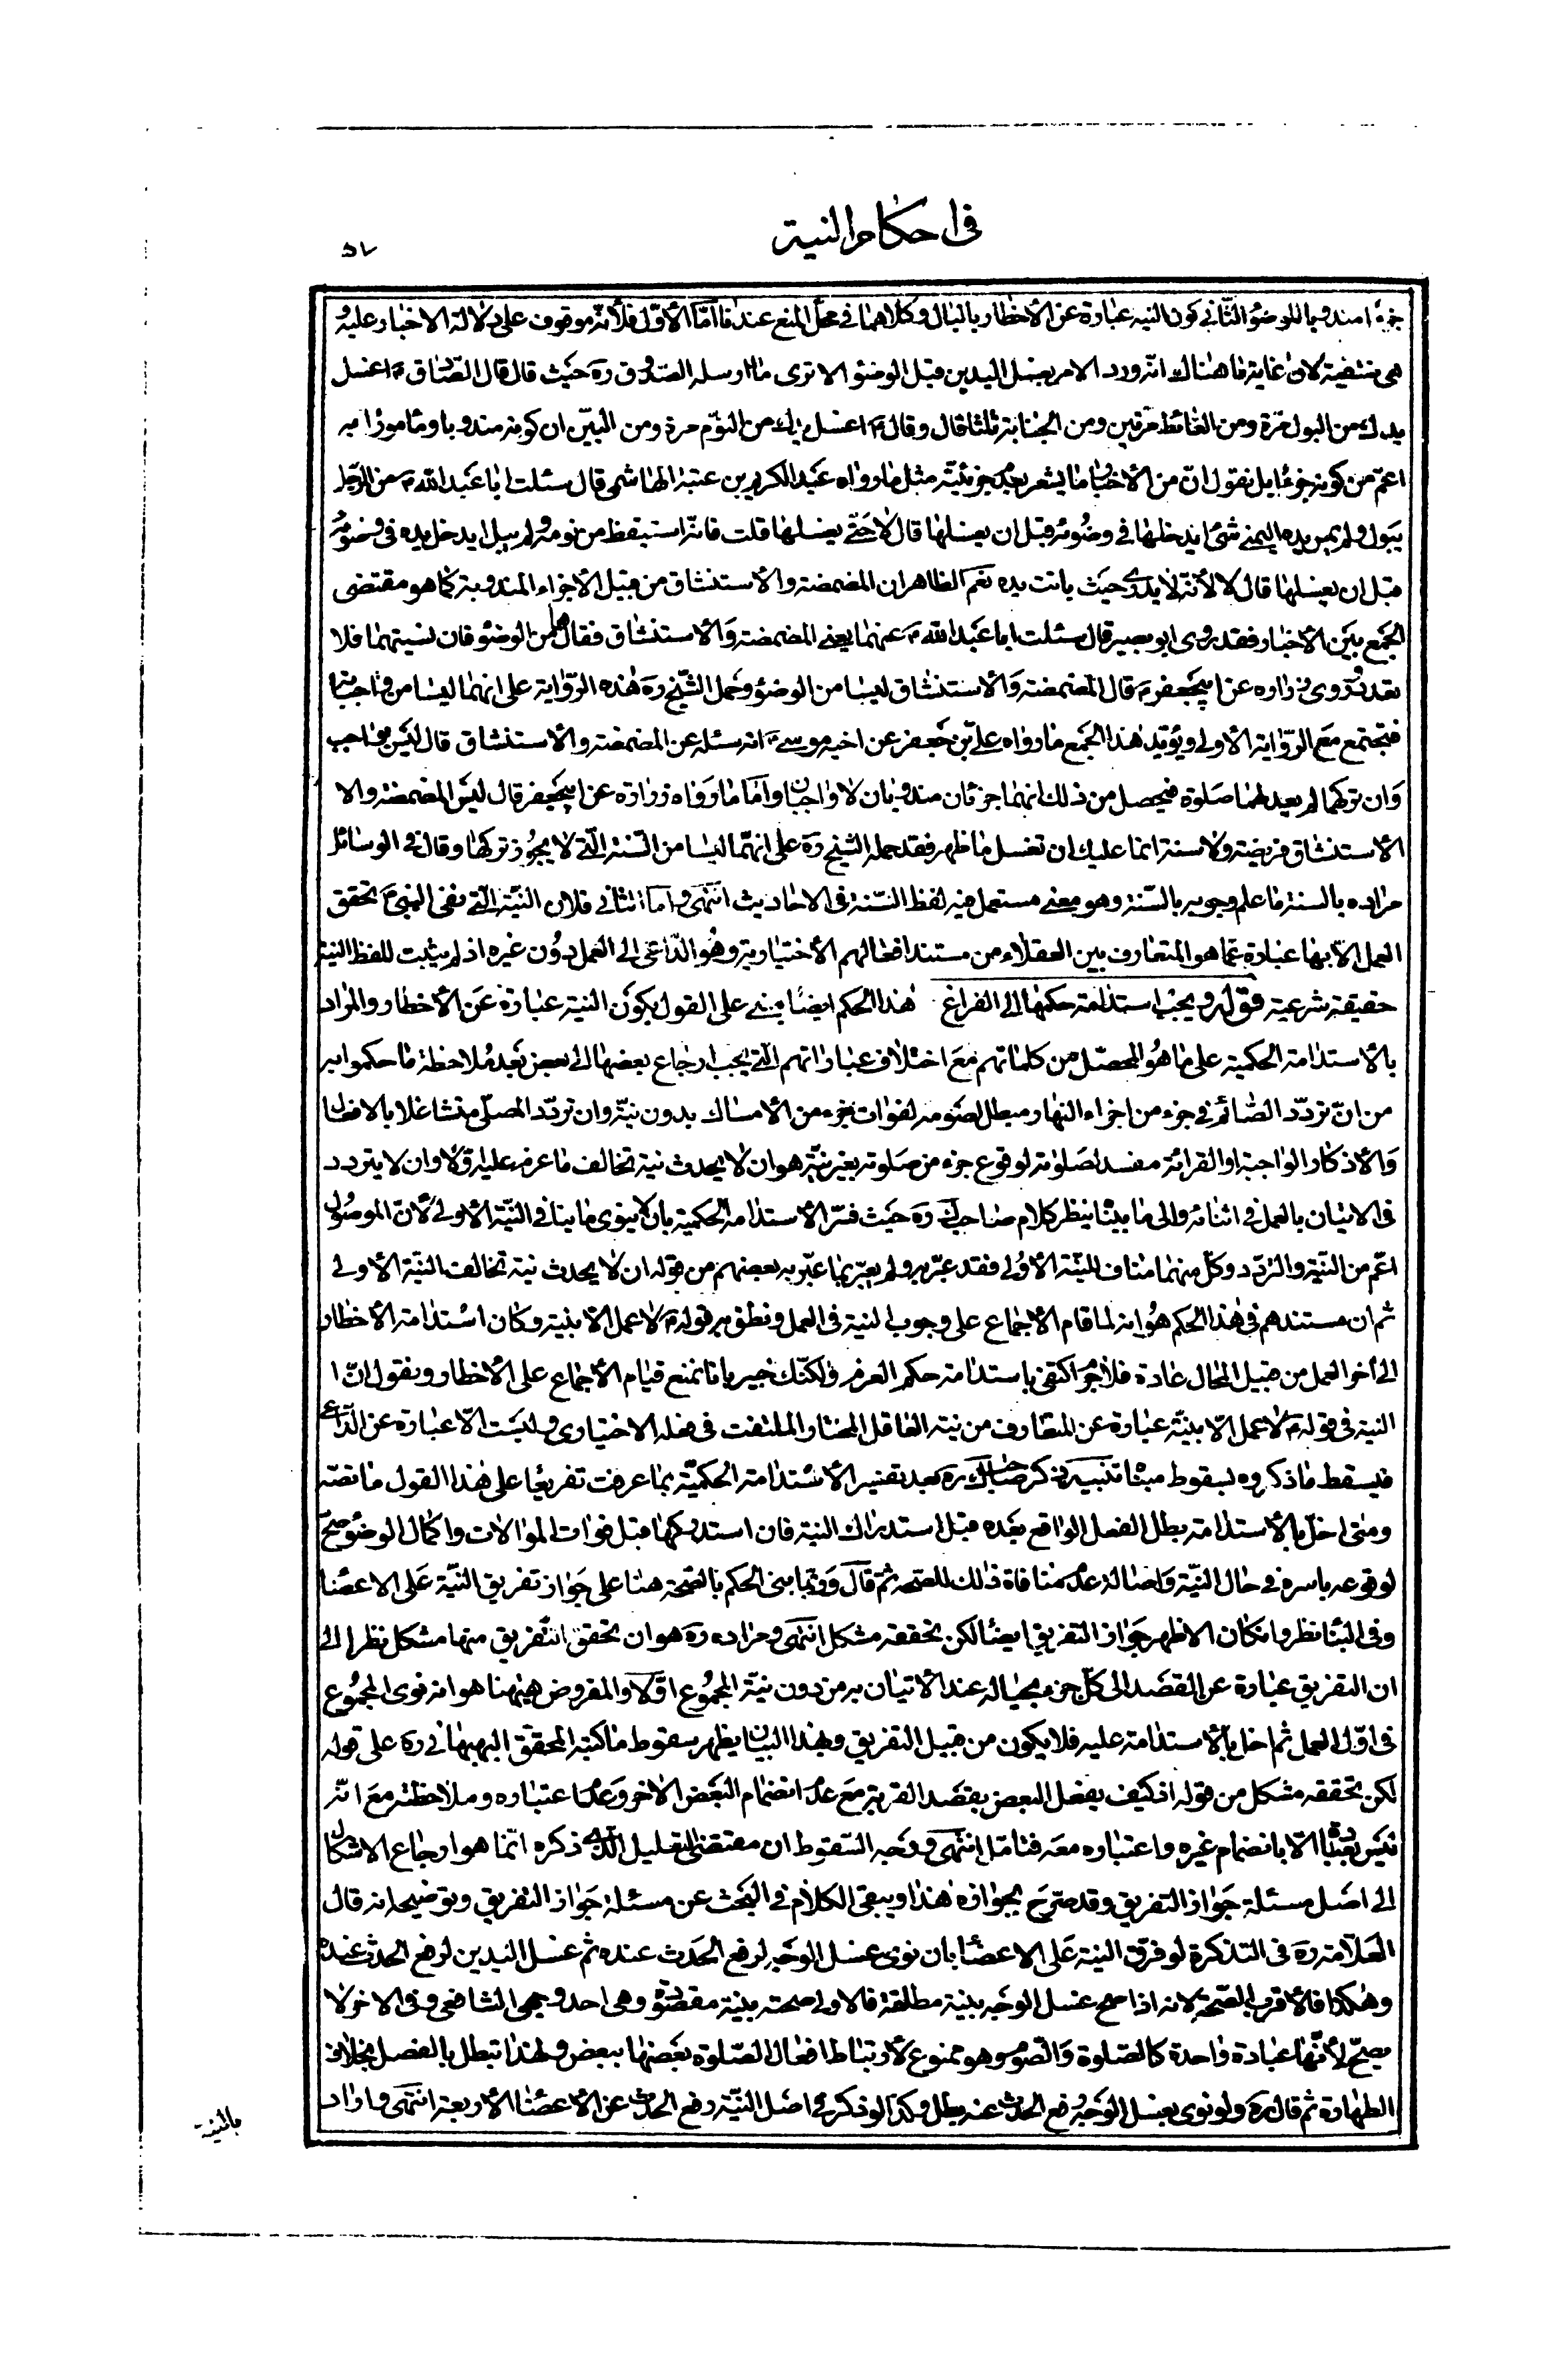 في احكام النية
٥٧
جزءا مندوبا للوضوء الثاني كون النيه عبارة عن الأخطار بالبال وكلاهما في محل المنع عندنا امّا الأوّل فلأنّه موقوف على دلالة الاخبار عليه و
هى منتفية لانّ غاية ما هناك انّه ورد الامر بغسل اليدين قبل الوضوء الا ترى ما ارسله الصّدوق ره حيث قال قال الصّادق ع اغسل
يدك من البول مرّة ومن الغائط مرّتين ومن الجنابة ثلثا قال وقال ع اغسل يدك من النّوم مرة ومن البيّن ان كونه مندوبا ومأمورا به
اعمّ من كونه جزءا بل نقول انّ من الأخبار ما يشعر بعدم جزئيّته مثل ما رواه عبد الكريم بن عتبة الهاشمى قال سئلت ابا عبد الله ع عن الرّجل
يبول ولم يمس يده اليمنى شئ ايدخلها في وضوئه قبل ان يغسلها قال لا حتّى يغسلها قلت فانّه استيقظ من نومه ولم يبل ايدخل يده في وضوئه
قبل ان يغسلها قال لا لأنّه لا يدرى حيث باتت يده نعم الظاهر ان المضمضة والأستنشاق من قبيل الأجزاء المندوبة كما هو مقتضى
الجمع بين الأخبار فقد روى ابو بصير قال سئلت ابا عبد الله ع عنهما يعنى المضمضة والأستنشاق فقال هما من الوضوء فان نسيتهما فلا
تعد وروى زراره عن ابيجعفر ع قال المضمضة والأستنشاق ليسا من الوضوء وحمل الشّيخ ره هذه الرّواية على انهما ليسا من واجباته
فتجتمع مع الرّواية الأولى ويؤيّد هذا الجمع ما رواه علىّ بن جعفر عن اخيه موسى ع انه سئله عن المضمضة والأستنشاق قال ليس بواجب
وان تركهما لم يعيد لهما صلوة فيحصل من ذلك انهما جزءان مندوبان لا واجبان وامّا ما رواه زرارة عن ابيجعفر قال ليس المضمضة والا
الأستنشاق فريضة ولا سنة انما عليك ان تغسل ما ظهر فقد حمله الشيخ ره على انهما ليسا من السّنة الّتى لا يجوز تركها وقال في الوسائل
مراده بالسنة ما علم وجوبه بالسّنة وهو معنى مستعمل فيه لفظ السّنة فى الاحاديث انتهى وامّا الثانى فلان النيّة الّتى نفى النبىّ ص تحقق
العمل الّا بها عبارة عمّا هو المتعارف بين العقلاء من مستند افعالهم الأختيارية وهو الدّاعى الى العمل دون غيره اذ لم يثبت للفظ النية
حقيقة شرعية قوله ويجب استدامة حكمها الى الفراغ هذا الحكم ايضا مبنى على القول بكون النية عبارة عن الأخطار والمراد
بالأستدامة الحكمية على ما هو المحصّل من كلماتهم مع اختلاف عباراتهم الّتى يجب ارجاع بعضها الى بعض بعد ملاحظة ما حكموا به
من انّ تردّد الصّائم في جزء من اجزاء النهار مبطل لصومه لفوات جزء من الأمساك بدون نيّة وان تردّد المصلّى متشاغلا بالافعال
والأذكار الواجبة او القرائة مفسد لصلوته لوقوع جزء من صلوته بغير نيّة هو ان لا يحدث نية تخالف ما عزم عليه اوّلا وان لا يتردد
فى الاتيان بالعمل في اثنائه والى ما بيّنّا ينظر كلام صاحب ك ره حيث فسّر الأستدامة الحكمية بان لا ينوى ما ينافى النيّة الأولى لأنّ الموصول
اعّم من النّية والتردّد وكلّ منهما مناف للنيّة الأولى فقد عبّر به ولم يعبّر بما عبّر به بعضهم من قوله ان لا يحدث نية تخالف النيّة الأولى
ثم ان مستندهم فى هذا الحكم هو انه لما قام الأجماع على وجوب النية فى العمل ونطق به قوله ع لا عمل الّا بنية وكان استدامة الأخطار
الى أخر العمل من قبيل المحال عادة فلا جرم اكتفى باستدامة حكم العزم ولكنّك خبير بانا نمنع قيام الأجماع على الأخطار ونقول انّ ا
النية فى قوله ع لا عمل الّا بنيّة عبارة عن المتعارف من نية العاقل المختار الملتفت فى فعله الاختيارى وليست الّا عبارة عن الدّاعى
فيسقط ما ذكروه لسقوط مبناه تنبيه ذكر صاحب ك ره بعد تفسير الأستدامة الحكميّة بما عرفت تفريعا على هذا القول ما نصّه
ومتى اخلّ بالأستدامة بطل الفعل الواقع بعده قبل استدراك النية فان استدركها قبل فوات الموالات واكمال الوضوء صحّ
لوقوعه باسره في حال النيّة واصالة عدم منافاة ذلك للصّحة ثمّ قال وربّما بنى الحكم بالصّحة هنا على جواز تفريق النيّة على الاعضاء
وفى البناء نظر وان كان الاظهر جواز التفريق ايضا لكن تحققه مشكل انتهى ومراده ره هو ان تحقق التّفريق منها مشكل نظرا الى
ان التفريق عبارة عن القصد الى كلّ جزء بحياله عند الأتيان به من دون نيّة المجموع اوّلا والمفروض هيهنا هو انه نوى المجموع
فى اوّل العمل ثم اخلّ بالأستدامة عليه فلا يكون من قبيل التفريق وبهذا البيان يظهر سقوط ما كتبه المحقّق البهبهانى ره على قوله
لكن تحققه مشكل من قوله اذ كيف يفعل البعض بقصد القربة مع عدم انضمام البعض الاخر وعدم اعتباره وملاحظته مع انّه
ليس بعبادة الّا بانضمام غيره واعتباره معه فتامّل انتهى ووجه السّقوط ان مقتضى التعليل الّذى ذكره انّما هو ارجاع الاشكال
الى اصل مسئلة جواز التفريق وقد صرّح بجوازه هذا ويبقى الكلام فى البحث عن مسئلة جواز التفريق وتوضيحه انه قال
العلّامة ره فى التذكرة لو فرق النية على الاعضاء بان نوى غسل الوجه لرفع الحدث عنده ثم غسل اليدين لرفع الحدث عنده
وهكذا فالأقرب الصّحّة لانه اذا صح غسل الوجه بنية مطلقة فالاولى صحته بنية مقصودة وهى احد وجهى الشافعى وفى الاخر لا
يصحّ لأنّها عبادة واحدة كالصّلوة والصّوم وهو ممنوع لأرتباط افعال الصّلوة بعضها ببعض ولهذا تبطل بالفصل بخلاف
الطهارة ثم قال ره ولو نوى بغسل الوجه رفع الحدث عنه بطل وكذا لو ذكر فى اصل النيّة رفع الحدث عن الأعضاء الأربعة انتهى واراد
بالنية